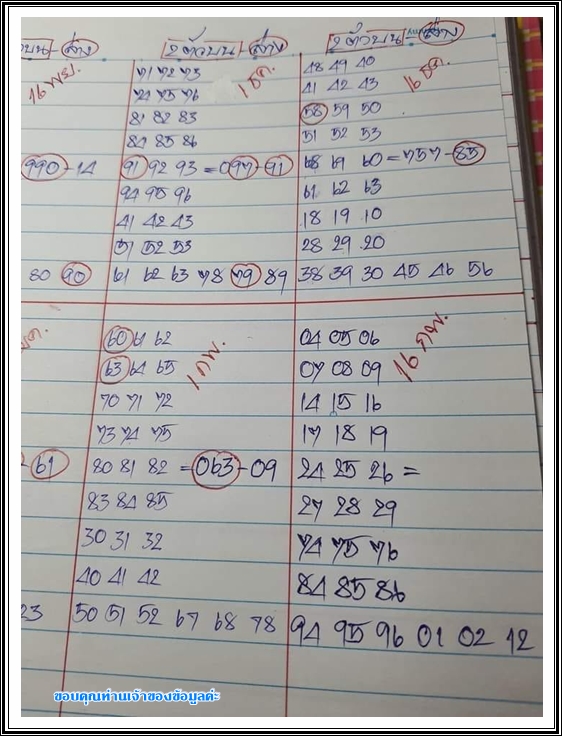 วบน - ล่าง
16 พย.
990 - 14
80 90
2 ตัวบน - ล่าง
1 ธค.
71 72 73
74 75 76
81 82 83
84 85 86
91 92 93 = 097 - 91
94 95 96
41 42 43
51 52 53
61 62 63 78 79 89
2 ตัวบน - ล่าง
16 ธค.
48 49 40
41 42 43
58 59 50
51 52 53
68 69 60 = 757 - 85
61 62 63
18 19 10
28 29 20
38 39 30 45 46 56
ค.
61
23
1 กพ.
60 61 62
63 64 65
70 71 72
73 74 75
80 81 82 = 063 - 09
83 84 85
30 31 32
40 41 42
50 51 52 67 68 78
16 กพ.
04 05 06
07 08 09
14 15 16
17 18 19
24 25 26 =
27 28 29
74 75 76
84 85 86
94 95 96 01 02 12
ขอบคุณท่านเจ้าของข้อมูลค่ะ